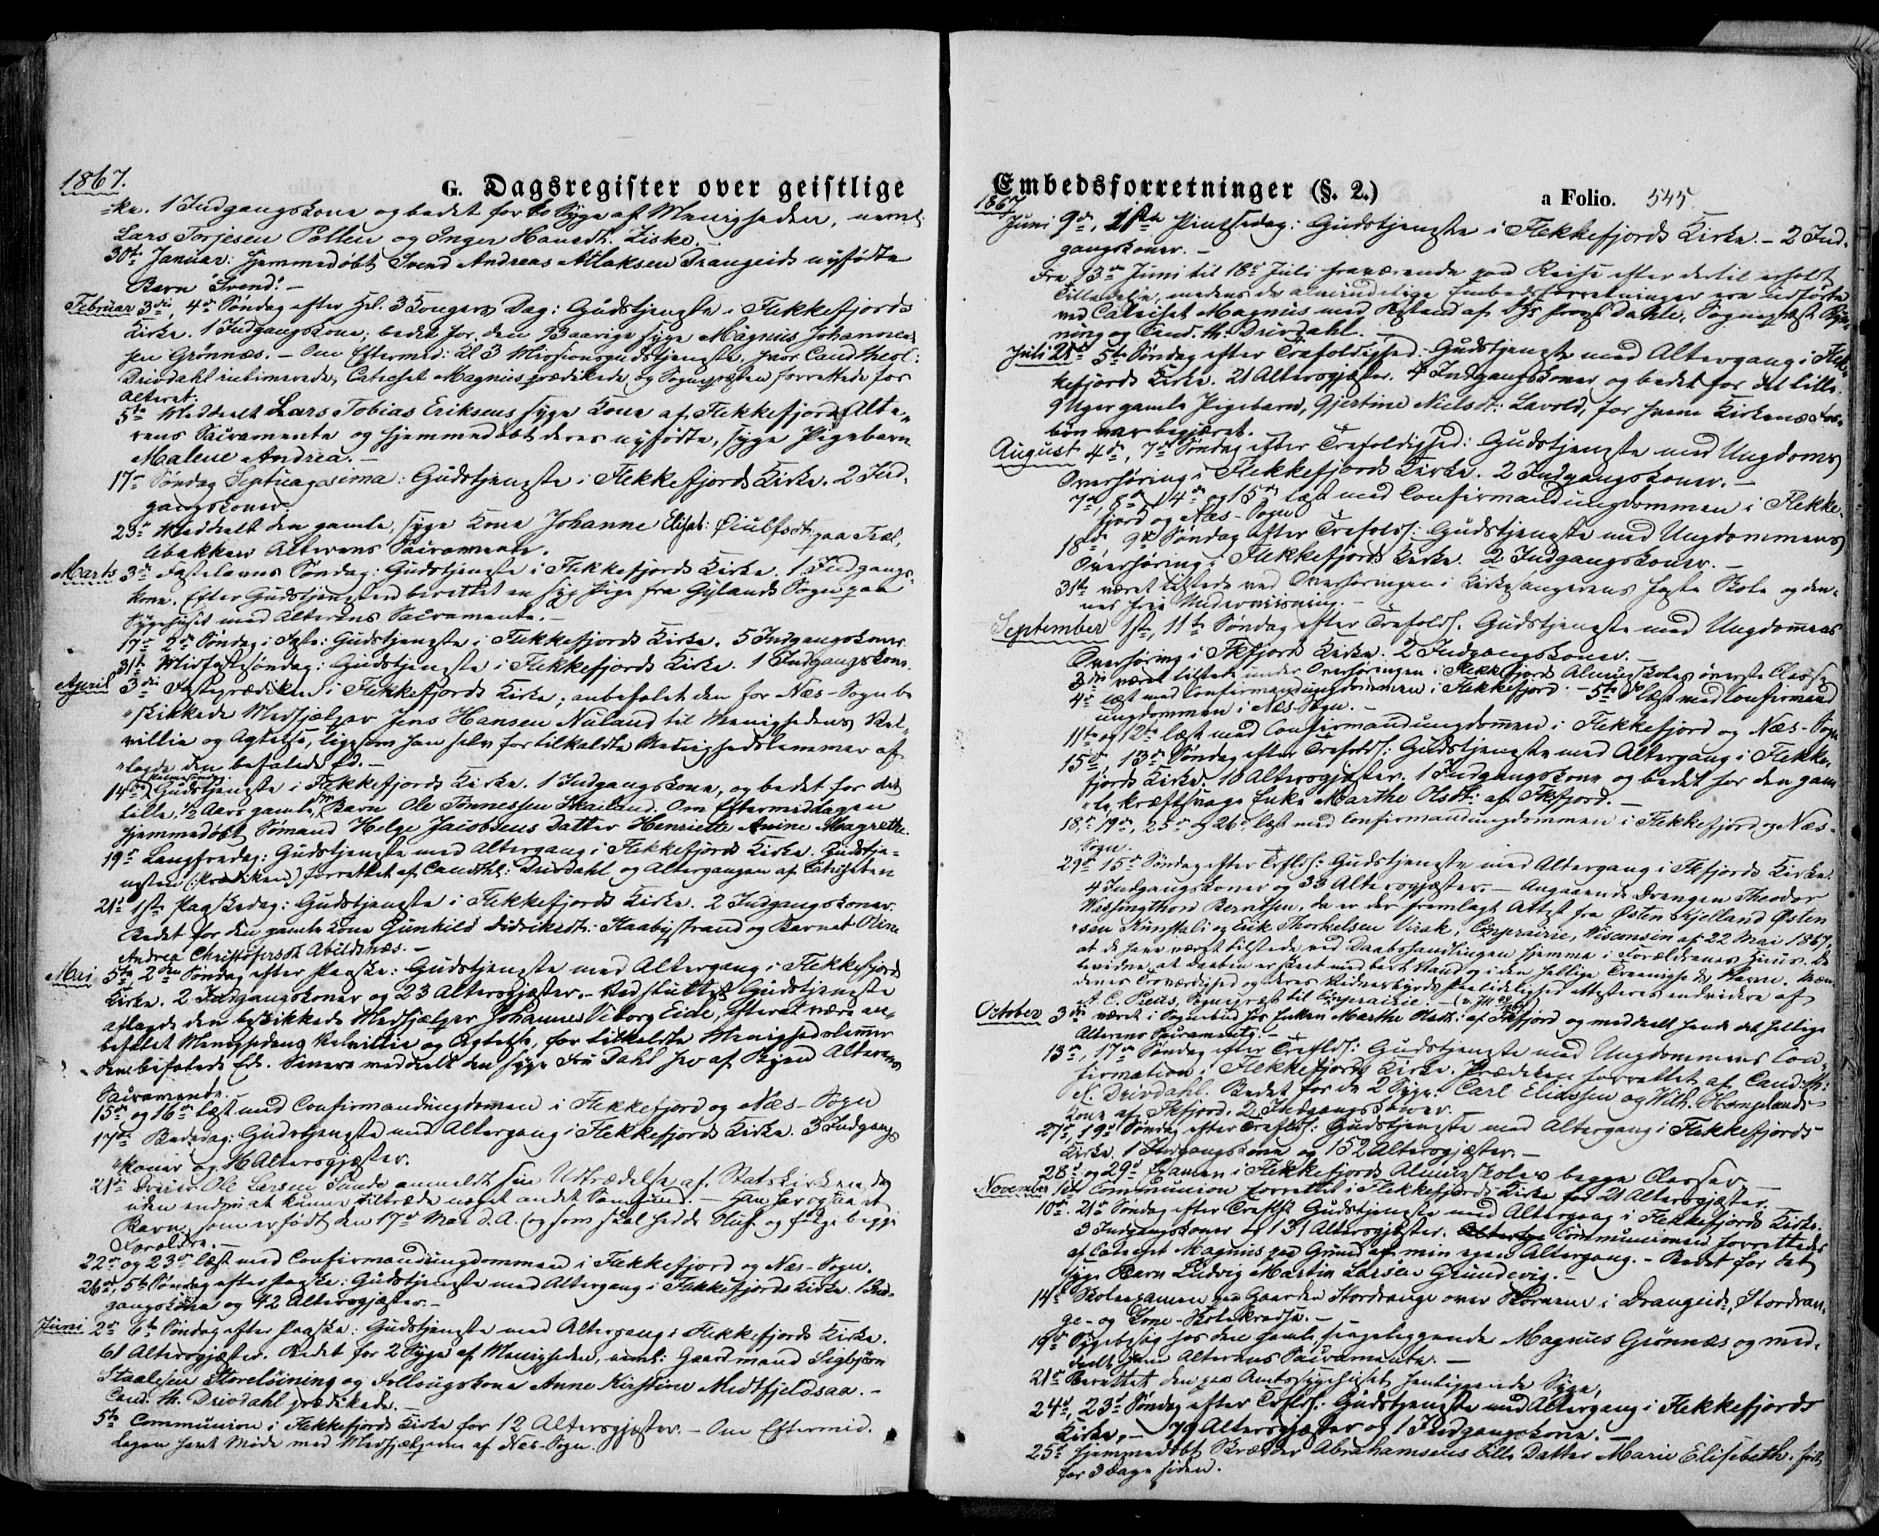 1867.
G. Dagsregister over geistlige
ke. 1 Indgangskone og bedet for to Syge af Menigheden, neml.
Lars Torjesen Pollen og Inger Hansdt. Liske.
30te Januar: hjemmedøbt Svend Andreas Atlaksen Drangeids nyfødte
Barn "Svend". –
Februar 3die, 4de Søndag efter Hel. 3 Kongers Dag: Gudstjeneste i Flekkefjords
Kirke. 1 Indgangskone; bedet for den aarige syge Magnus Johannes
sen Grønnæs. – Om Eftermid: Kl 3 Missionsgudstjeneste, hvor Cand. theol:
Drivdahl intimerede, Catechet Magnus prædikede og Sognepræsten forrettede for
Alteret.
5te Meddeelt Lars Tobias Eriksens syge Kone af Flekkefjord Alte-
rens Sacramente og hjemmedøbt deres nyfødte, syge Pigebarn
Malene Andrea. –
17de Søndag Septuagesima: Gudstjeneste i Flekkefjords Kirke. 2 Ind-
gangskoner.
23de Meddeelt den gamle, syge Kone Johanne Elisab: Øiulfsdt. paa Træl-
lebakken Alterens Sacramente.
Marts 3die Fastelavns Søndag: Gudstjeneste i Flekkefjords Kirke. 1 Indgangs-
kone. Efter Gudstjenesten berettet en syg Pige fra Gylands Sogn paa
Sygehuset med Alterens Sacramente. –
17de 2den Søndag i Faste: Gudstjeneste i Flekkefjords Kirke. 5 Indgangskoner.
31te Midfastesøndag: Gudstjeneste i Flekkefjords Kirke. 1 Indgangskone.
April 3die Fasteprædiken i Flekkefjords Kirke; anbefalet den for Næs-Sogn be-
skikkede Medhjælper Jens Hansen Nuland til Menighedens Vel-
villie og Agtelse, ligesom han selv for tilkaldte Menighedslemmer af-
lagde den befalede Ed. –
Palmesøndag
14de Gudstjeneste i Flekkefjords Kirke. 1 Indgangskone, og bedet for det
lille, ½ Aars gamle Barn Ole Tønnessen Skailand. Om Eftermiddagen
hjemmedøbt Sømand Helge Jacobsens Datter Henriette Anine Magrethe.
19de Langfredag: Gudstjeneste med Altergang i Flekkefjords Kirke. Gudstje-
nesten (Prædiken) forrettet af Cand. th: Drivdahl og Altergangen af Catecheten
21de 1ste Paaskedag: Gudstjeneste i Flekkefjords Kirke. 2 Indgangskoner.
Bedet for den gamle Kone Gunhild Didriksdt: Raabystrand og Barnet Oline
Andrea Christofersdt Abildsnæs. –
Mai 5te 2den Søndag efter Paaske: Gudstjeneste med Altergang i Flekkefjords
Kirke. 2 Indgangskoner og 23 Altersgjæster. – Ved sluttet Gudstjeneste
aflagde den beskikkede Medhjælper Johannes Viborg Eide, efterat være an-
befalet Menighedens Velvillie og Agtelse, for tilkaldte Menighedslemer
den befalede Ed. Senere meddeelt den syge Fru Dahl her af Byen Alterens
Sacramente.
15de og 16de læst med Confirmandungdomen i Flekkefjord og Næs-Sogn
17de Bededag: Gudstjeneste med Altergang i Flekkefjords Kirke. 3 Indgangs-
koner og Altersgjæster.
21de Dreier Ole Larsen Sunde anmeldt sin Udtrædelse af Statskirken, dog
uden endnu at kunne tiltræde noget andet Samfund. – Han har og havt et
Barn, som er født den 17de Mai d.A. (og som skal hedde Oluf og følge begge
Forældre. –
22de og 23de læst med Confirmandungdommen i Flekkefjord og Næs-Sogn.
26de, 5te Søndag efter Paaske: Gudstjeneste med Altergang i Flekkefjords Kirke. 1 Ind-
gangskone og 42 Altersgjæster. –
Juni 2den 6te Søndag efter Paaske: Gudstjeneste med Altergang i Flekkefjords Kirke.
61 Altersgjæster. Bedet for 2 Syge af Menigheden, neml: Gaardmand Sigbjørn
Staalesen Storeløining og Follougskone Anne Kirstine Midtfjeldsaa. –
Cand. th. Drivdahl prædikede. –
5te Communion i Flekkefjords Kirke for 12 Altersgjæster. – Om Eftermid-
dagen havt Møde med Medhjælperne af Næs-Sogn.
Embedsforretninger (§. 2.)
a Folio. 545.
1867
Juni 9de, 1ste Pintsedag: Gudstjeneste i Flekkefjords Kirke. – 2 Ind-
gangskoner. –
Fra 13de Juni til 18de Juli fraværende paa Reise efter dertil erholdt
Tilladelse, medens de almindelige Embedsforretninger ere udførte
ved Catechet Magnus med Bistand af Hr Provst Dahle, Sognepræst
ning og Cand. th. Drivdahl. –
Juli 21de 5te Søndag efter Trefoldighed: Gudstjeneste med Altergang i Flek-
kefjords Kirke. 21 Altersgjæster. 4 Indgangskoner og bedet for det lille
9 Uger gamle Pigebarn, Gjertine Nielsdt: Lavold, for hvem Kirkens For-
bøn var begjæret. –
August 4de, 7de Søndag efter Trefoldighed: Gudstjeneste med Ungdomens
Overhøring i Flekkefjords Kirke. 2 Indgangskoner. –
7de, 8de, 14de og 15de læst med Confirmandungdommen i Flekke-
fjord og Næs-Sogn
18de 9de Søndag efter Trefolds: Gudstjeneste med Ungdommens
Overhøring i Flekkefjords Kirke. 2 Indgangskoner. –
31te været tilstede ved Overhøringen i Kirkesangerens faste Skole og den-
nes frie Underviisning. –
September 1ste, 11te Søndag efter Trefolds: Gudstjeneste med Ungdomens
Overhøring i Fkfjord Kirke. 2 Indgangskoner. –
3die været tilstede under Overhøringen i Flekkefjords Almueskoles øverste Classe
4de læst med Confirmandungdommen i Flekkefjord. – 5te Do læst med Confirmand
ungdommen i Næs-Sogn. –
11te og 12te læst med Confirmandungdomen i Flekkefjord og Næs-Sogn
15de, 13de Søndag efter Trefolds: Gudstjeneste med Altergang i Flekke-
fjords Kirke. 18 Altersgjæster. 1 Indgangskone og bedet for den gam
le, kræftsvage Enke Marthe Olsdt: af Fkfjord. –
18de 19de, 25de og 26de læst med Confirmandungdommen i Flekkefjord og Næs-
Sogn.
29de 15de Søndag efter Trefolds: Gudstjeneste med Altergang i Fkfjords Kirke.
4 Indgangskoner og 33 Altersgjæster. – Angaaende Drengen Theodor
Wassingthon Berntsen, da er der fremlagt Attest fra Østen Kjelland Østen-
sen Kunstali og Erik Thorkelsen Virak, Conprairie, Wisconsin af 22 Mai 1867,
at de have været tilstede ved Daabshandlingen hjemme i Forældrenes Huus. De
bevidne, at Daaben er skeet med bart Vand og i den hellige Treenigheds Navn. Mæn-
denes Troværdighed og deres Vidnesbyrds Paalidelighed attesteres endvidere af
A. C. Preus, Sognepræst til Conprairie. –
October 3die været i Sognebud hos Enken Marthe Olsdt: af Fkfjord og meddeelt hende det hellige
Alterens Sacramente. –
13de, 17de Søndag efter Trefolds: Gudstjeneste med Ungdommens Con-
firmation i Flekkefjords Kirke. Prædiken forrettet af Cand: th:
N. Drivdahl. Bedet for de 2 Syge: Carl Eliassen og Wilh. Hamplands
Kone af Fkfjord. 2 Indgangskoner.
27de, 19de Søndag efter Trefolds: Gudstjeneste med Altergang i Flekkefjords
Kirke. 1 Indgangskone og 152 Altersgjæster. –
28de og 29de Examen i Flekkefjords Almueskoles begge Classer.
November 1ste Communion forrettet i Flekkefjords Kirke for 21 Altersgjæster.
10de 21de Søndag efter Trefolds: Gudstjeneste med Altergang i Flekkefjords Kirke.
3 Indgangskoner og 131 Altersgjæster. Communionen forrettedes
af Catechet Magnus paa Grund af min egen Altergang. – Bedet for det
syge Barn Ludvig Martin Larsen Grundevig. –
14de Skoleexamen paa Gaarden Stordrange over Børnene i Drangeid-, Stordran-
ge- og Lone-Skolekredse. –
19de Sygebesøg hos den gamle sengeliggende Magnus Grønnæs og med-
deelt ham Alterens Sacramente. –
21de Berettet den paa Amtssygehuset henliggende Syge,
24de, 23de Søndag efter Trefolds: Gudstjeneste med Altergang i Flekkefjords
Kirke. – 79 Altersgjæster og 1 Indgangskone. –
25de hjemmedøbt Skræder Abrahamsens lille Datter Marie Elisebeth, født
for 3 Dage siden.